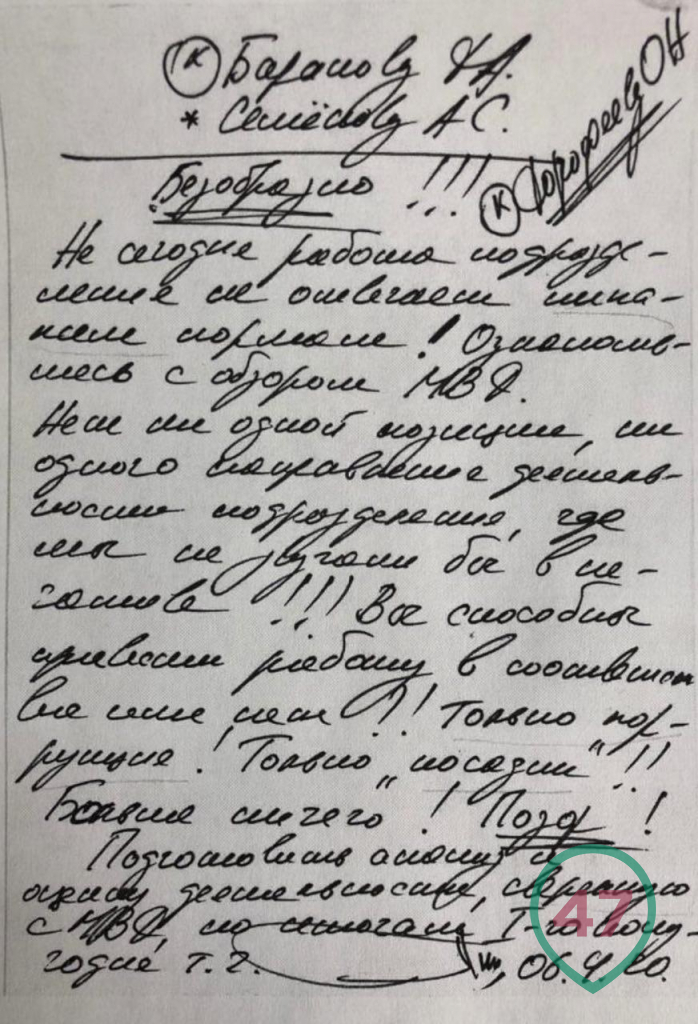 (К) Баранову Д.А.
* Семёнову А.С.
(К) Дорофееву ОН
Безобразно !!!
На сегодня работа подразде-
ления не отвечает ника-
ким нормам! Ознакомь-
тесь с обзором МВД.
Нет ни одной позиции, ни
одного направления деятель-
ности подразделения, где
мы не звучали бы в не-
гативе !!! Вы способны
привести работу в соответст
вие или нет !!! Только кор-
рупция! Только „посадки" !!!
Больше ничего ! Позор !
Подготовить анализ и
оценку деятельности, сверенную
с МВД, по итогам I-го полу-
годия т.г. 06.7.20.
47